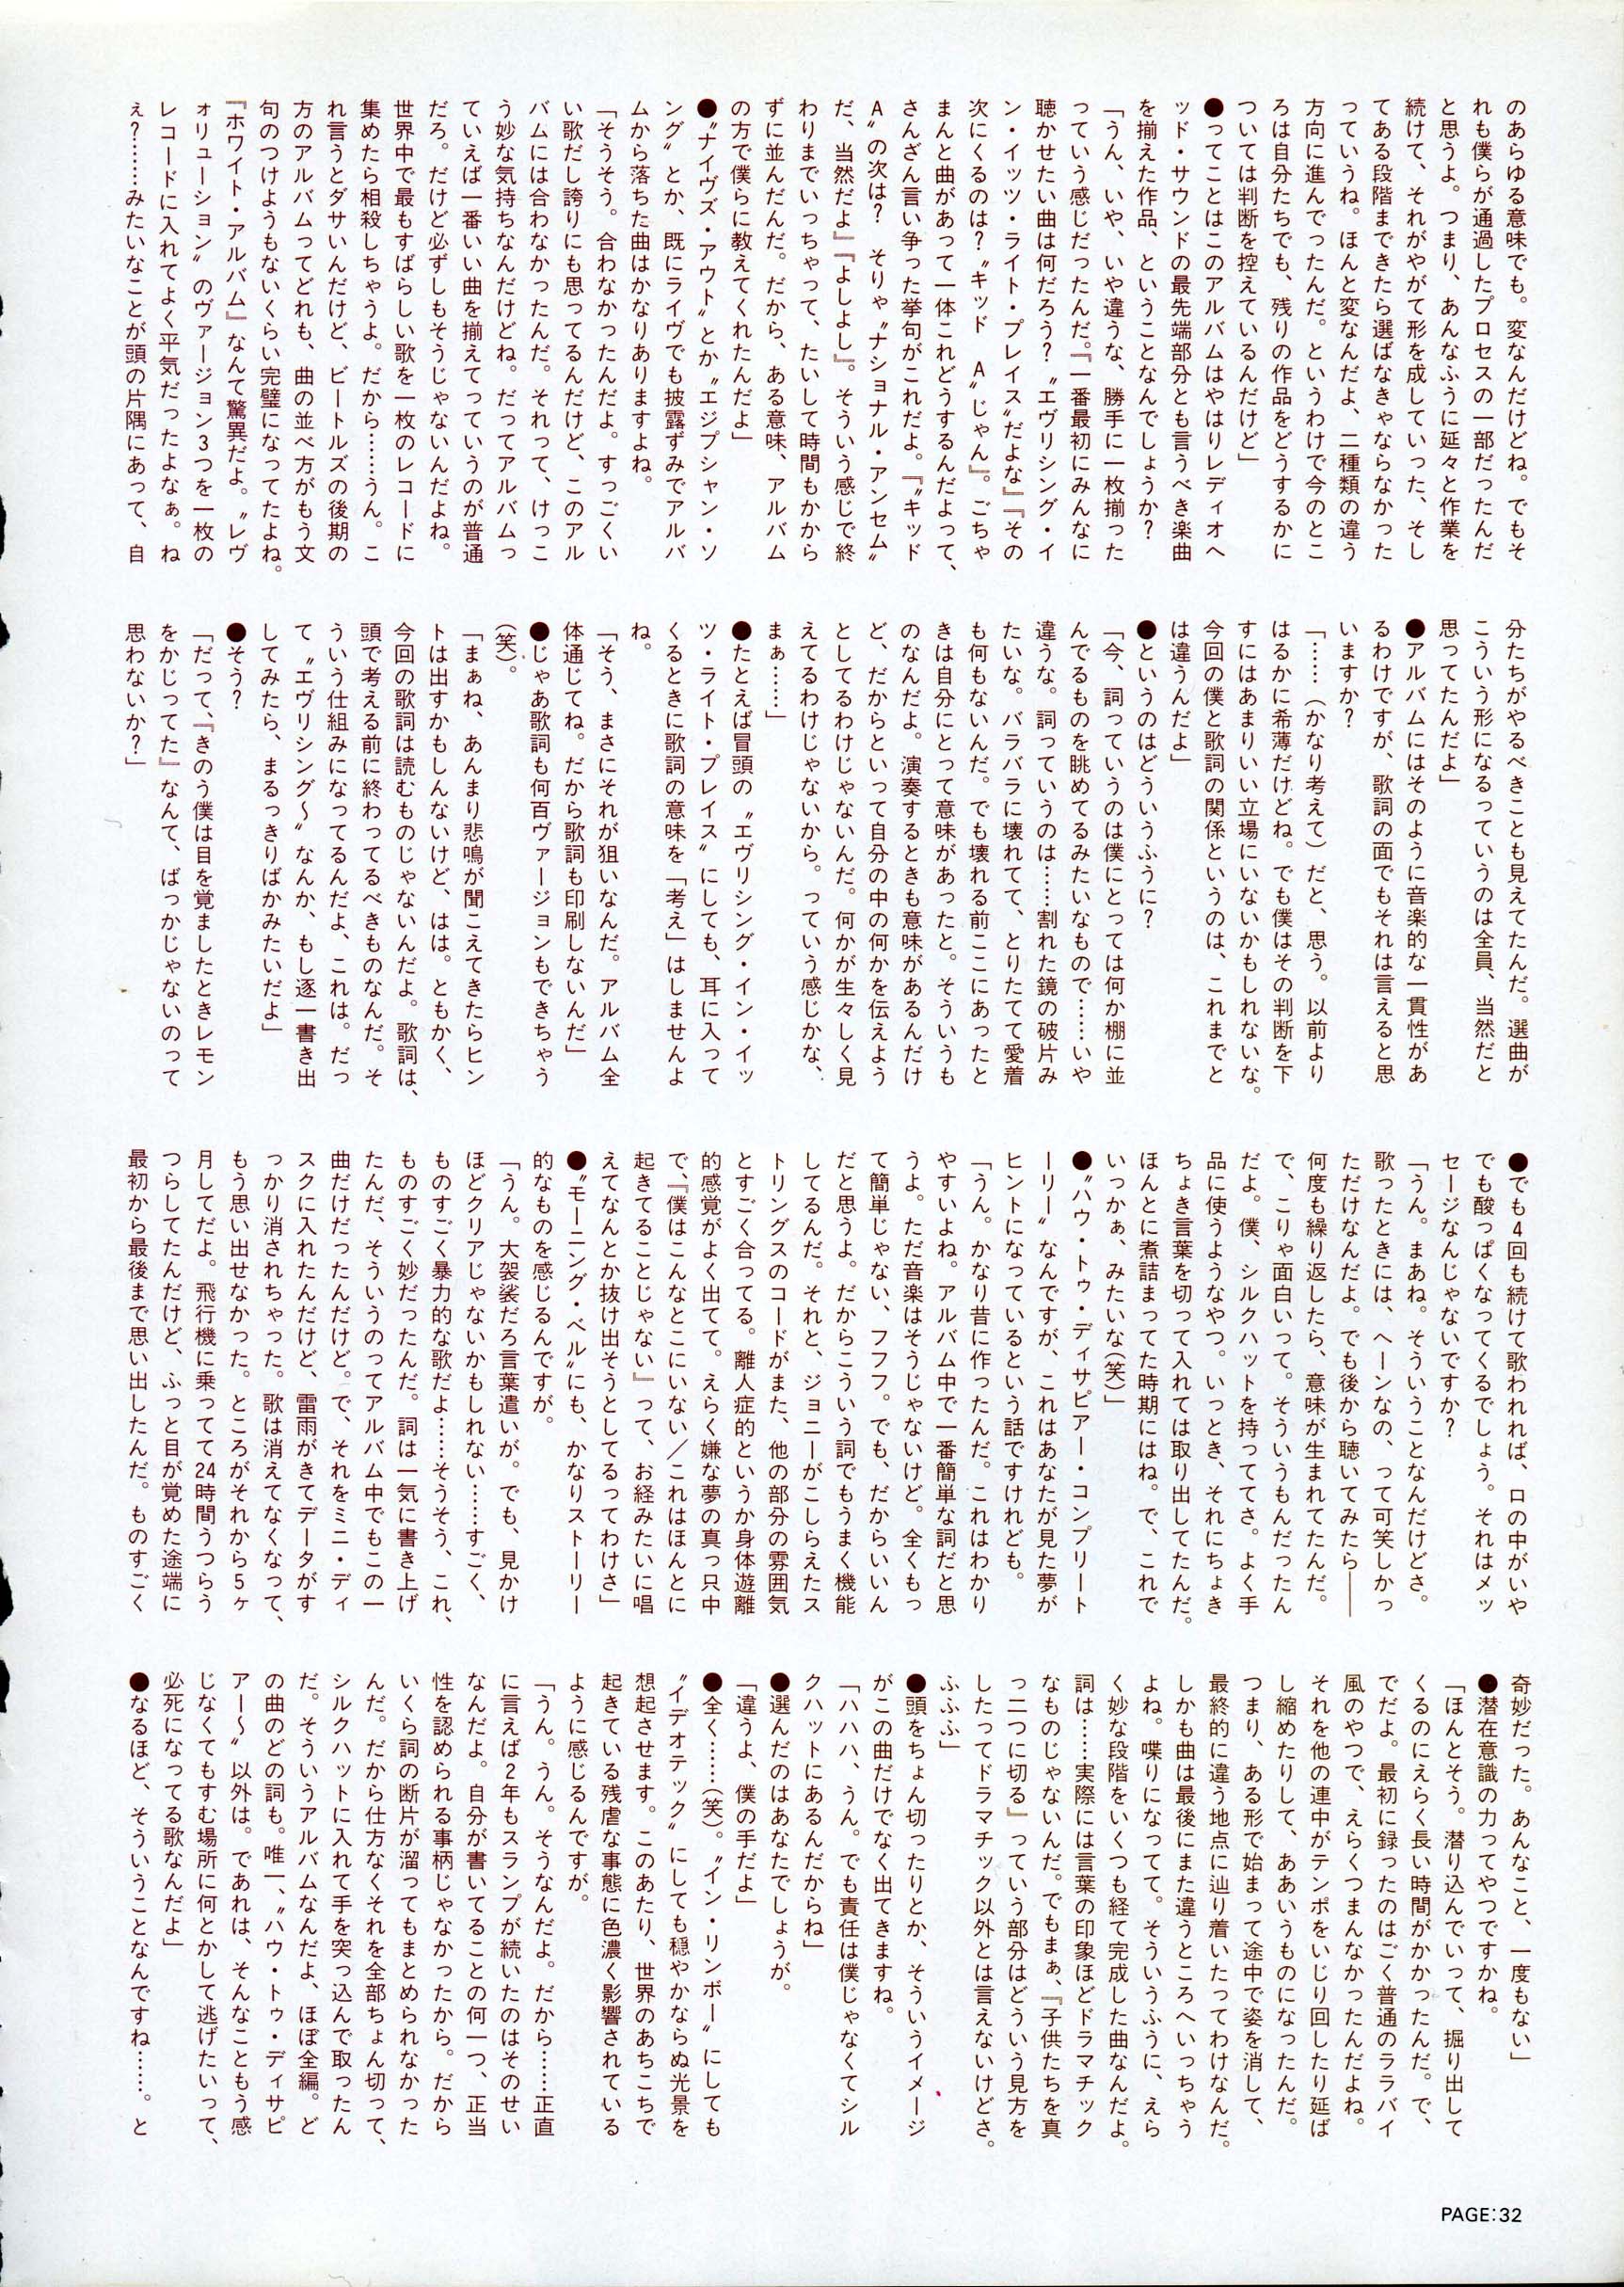 のあらゆる意味でも。変なんだけどね。でもそ
れも僕らが通過したプロセスの一部だったんだ
と思うよ。つまり、あんなふうに延々と作業を
続けて、それがやがて形を成していった、そし
てある段階まできたら選ばなきゃならなかった
っていうね。ほんと変なんだよ、二種類の違う
方向に進んでったんだ。というわけで今のとこ
ろは自分たちでも、残りの作品をどうするかに
ついては判断を控えているんだけど」
●ってことはこのアルバムはやはりレディオヘ
ッド・サウンドの最先端部分とも言うべき楽曲
を揃えた作品、ということなんでしょうか？
「うん、いや、いや違うな、勝手に一枚揃った
っていう感じだったんだ。『一番最初にみんなに
聴かせたい曲は何だろう？〝エヴリシング・イ
ン・イッツ・ライト・プレイス〟だよな』『その
次にくるのは？〝キッド A〟じゃん』。ごちゃ
まんと曲があって一体これどうするんだよって、
さんざん言い争った挙句がこれだよ。『〝キッド
A〟の次は？ そりゃ〝ナショナル・アンセム〟
だ、当然だよ』『よしよし』。そういう感じで終
わりまでいっちゃって、たいして時間もかから
ずに並んだんだ。だから、ある意味、アルバム
の方で僕らに教えてくれたんだよ」
●〝ナイヴズ・アウト〟とか〝エジプシャン・ソ
ング〟とか、既にライヴでも披露ずみでアルバ
ムから落ちた曲はかなりありますよね。
「そうそう。合わなかったんだよ。すっごくい
い歌だし誇りにも思ってるんだけど、このアル
バムには合わなかったんだ。それって、けっこ
う妙な気持ちなんだけどね。だってアルバムっ
ていえば一番いい曲を揃えてっていうのが普通
だろ。だけど必ずしもそうじゃないんだよね。
世界中で最もすばらしい歌を一枚のレコードに
集めたら相殺しちゃうよ。だから……うん。こ
れ言うとダサいんだけど、ビートルズの後期の
方のアルバムってどれも、曲の並べ方がもう文
句のつけようもないくらい完璧になってたよね。
『ホワイト・アルバム』なんて驚異だよ。〝レヴ
ォリューション〟のヴァージョン3つを一枚の
レコードに入れてよく平気だったよなぁ。ね
ぇ？……みたいなことが頭の片隅にあって、自
分たちがやるべきことも見えてたんだ。選曲が
こういう形になるっていうのは全員、当然だと
思ってたんだよ」
●アルバムにはそのように音楽的な一貫性があ
るわけですが、歌詞の面でもそれは言えると思
いますか？
「……（かなり考えて）だと、思う。以前より
はるかに希薄だけどね。でも僕はその判断を下
すにはあまりいい立場にいないかもしれないな。
今回の僕と歌詞の関係というのは、これまでと
は違うんだよ」
●というのはどういうふうに？
「今、詞っていうのは僕にとっては何か棚に並
んでるものを眺めてるみたいなもので……いや
違うな。詞っていうのは……割れた鏡の破片み
たいな。バラバラに壊れてて、とりたてて愛着
も何もないんだ。でも壊れる前ここにあったと
きは自分にとって意味があったと。そういうも
のなんだよ。演奏するときも意味があるんだけ
ど、だからといって自分の中の何かを伝えよう
としてるわけじゃないんだ。何かが生々しく見
えてるわけじゃないから。っていう感じかな、
まぁ……」
●たとえば冒頭の〝エヴリシング・イン・イッ
ツ・ライト・プレイス〟にしても、耳に入って
くるときに歌詞の意味を「考え」はしませんよ
ね。
「そう、まさにそれが狙いなんだ。アルバム全
体通じてね。だから歌詞も印刷しないんだ」
●じゃあ歌詞も何百ヴァージョンもできちゃう
（笑）。
「まぁね、あんまり悲鳴が聞こえてきたらヒン
トは出すかもしんないけど、はは。ともかく、
今回の歌詞は読むものじゃないんだよ。歌詞は、
頭で考える前に終わってるべきものなんだ。そ
ういう仕組みになってるんだよ、これは。だっ
て〝エヴリシング〜〟なんか、もし逐一書き出
してみたら、まるっきりばかみたいだよ」
●そう？
「だって、『きのう僕は目を覚ましたときレモン
をかじってた』なんて、ばっかじゃないのって
思わないか？」
●でも4回も続けて歌われれば、口の中がいや
でも酸っぱくなってくるでしょう。それはメッ
セージなんじゃないですか？
「うん。まあね。そういうことなんだけどさ。
歌ったときには、へーンなの、って可笑しかっ
ただけなんだよ。でも後から聴いてみたら――
何度も繰り返したら、意味が生まれてたんだ。
で、こりゃ面白いって。そういうもんだったん
だよ。僕、シルクハットを持っててさ。よく手
品に使うようなやつ。いっとき、それにちょき
ちょき言葉を切って入れては取り出してたんだ。
ほんとに煮詰まってた時期にはね。で、これで
いっかぁ、みたいな（笑）」
●〝ハウ・トゥ・ディサピアー・コンプリート
ーリー〟なんですが、これはあなたが見た夢が
ヒントになっているという話ですけれども。
「うん。かなり昔に作ったんだ。これはわかり
やすいよね。アルバム中で一番簡単な詞だと思
うよ。ただ音楽はそうじゃないけど。全くもっ
て簡単じゃない、フフフ。でも、だからいいん
だと思うよ。だからこういう詞でもうまく機能
してるんだ。それと、ジョニーがこしらえたス
トリングスのコードがまた、他の部分の雰囲気
とすごく合ってる。離人症的というか身体遊離
的感覚がよく出てて。えらく嫌な夢の真っ只中
で、『僕はこんなとこにいない／これはほんとに
起きてることじゃない』って、お経みたいに唱
えてなんとか抜け出そうとしてるってわけさ」
●〝モーニング・ベル〟にも、かなりストーリー
的なものを感じるんですが。
「うん。大袈裟だろ言葉遣いが。でも、見かけ
ほどクリアじゃないかもしれない……すごく、
ものすごく暴力的な歌だよ……そうそう、これ、
ものすごく妙だったんだ。詞は一気に書き上げ
たんだ、そういうのってアルバム中でもこの一
曲だけだったんだけど。で、それをミニ・ディ
スクに入れたんだけど、雷雨がきてデータがす
っかり消されちゃった。歌は消えてなくなって、
もう思い出せなかった。ところがそれから5ヶ
月してだよ。飛行機に乗ってて24時間うつらう
つらしてたんだけど、ふっと目が覚めた途端に
最初から最後まで思い出したんだ。ものすごく
奇妙だった。あんなこと、一度もない」
●潜在意識の力ってやつですかね。
「ほんとそう。潜り込んでいって、掘り出して
くるのにえらく長い時間がかかったんだ。で、
でだよ。最初に録ったのはごく普通のララバイ
風のやつで、えらくつまんなかったんだよね。
それを他の連中がテンポをいじり回したり延ば
し縮めたりして、ああいうものになったんだ。
つまり、ある形で始まって途中で姿を消して、
最終的に違う地点に辿り着いたってわけなんだ。
しかも曲は最後にまた違うところへいっちゃう
よね。喋りになってて。そういうふうに、えら
く妙な段階をいくつも経て完成した曲なんだよ。
詞は……実際には言葉の印象ほどドラマチック
なものじゃないんだ。でもまぁ、『子供たちを真
っ二つに切る』っていう部分はどういう見方を
したってドラマチック以外とは言えないけどさ。
ふふふ」
●頭をちょん切ったりとか、そういうイメージ
がこの曲だけでなく出てきますね。
「ハハハ、うん。でも責任は僕じゃなくてシル
クハットにあるんだからね」
●選んだのはあなたでしょうが。
「違うよ、僕の手だよ」
●全く……（笑）。〝イン・リンボー〟にしても
〝イデオテック〟にしても穏やかならぬ光景を
想起させます。このあたり、世界のあちこちで
起きている残虐な事態に色濃く影響されている
ように感じるんですが。
「うん。うん。そうなんだよ。だから……正直
に言えば2年もスランプが続いたのはそのせい
なんだよ。自分が書いてることの何一つ、正当
性を認められる事柄じゃなかったから。だから
いくら詞の断片が溜ってもまとめられなかった
んだ。だから仕方なくそれを全部ちょん切って、
シルクハットに入れて手を突っ込んで取ったん
だ。そういうアルバムなんだよ、ほぼ全編。ど
の曲のどの詞も。唯一、〝ハウ・トゥ・ディサピ
アー〜〟以外は。であれは、そんなこともう感
じなくてもすむ場所に何とかして逃げたいって、
必死になってる歌なんだよ」
●なるほど、そういうことなんですね……。と
PAGE:32